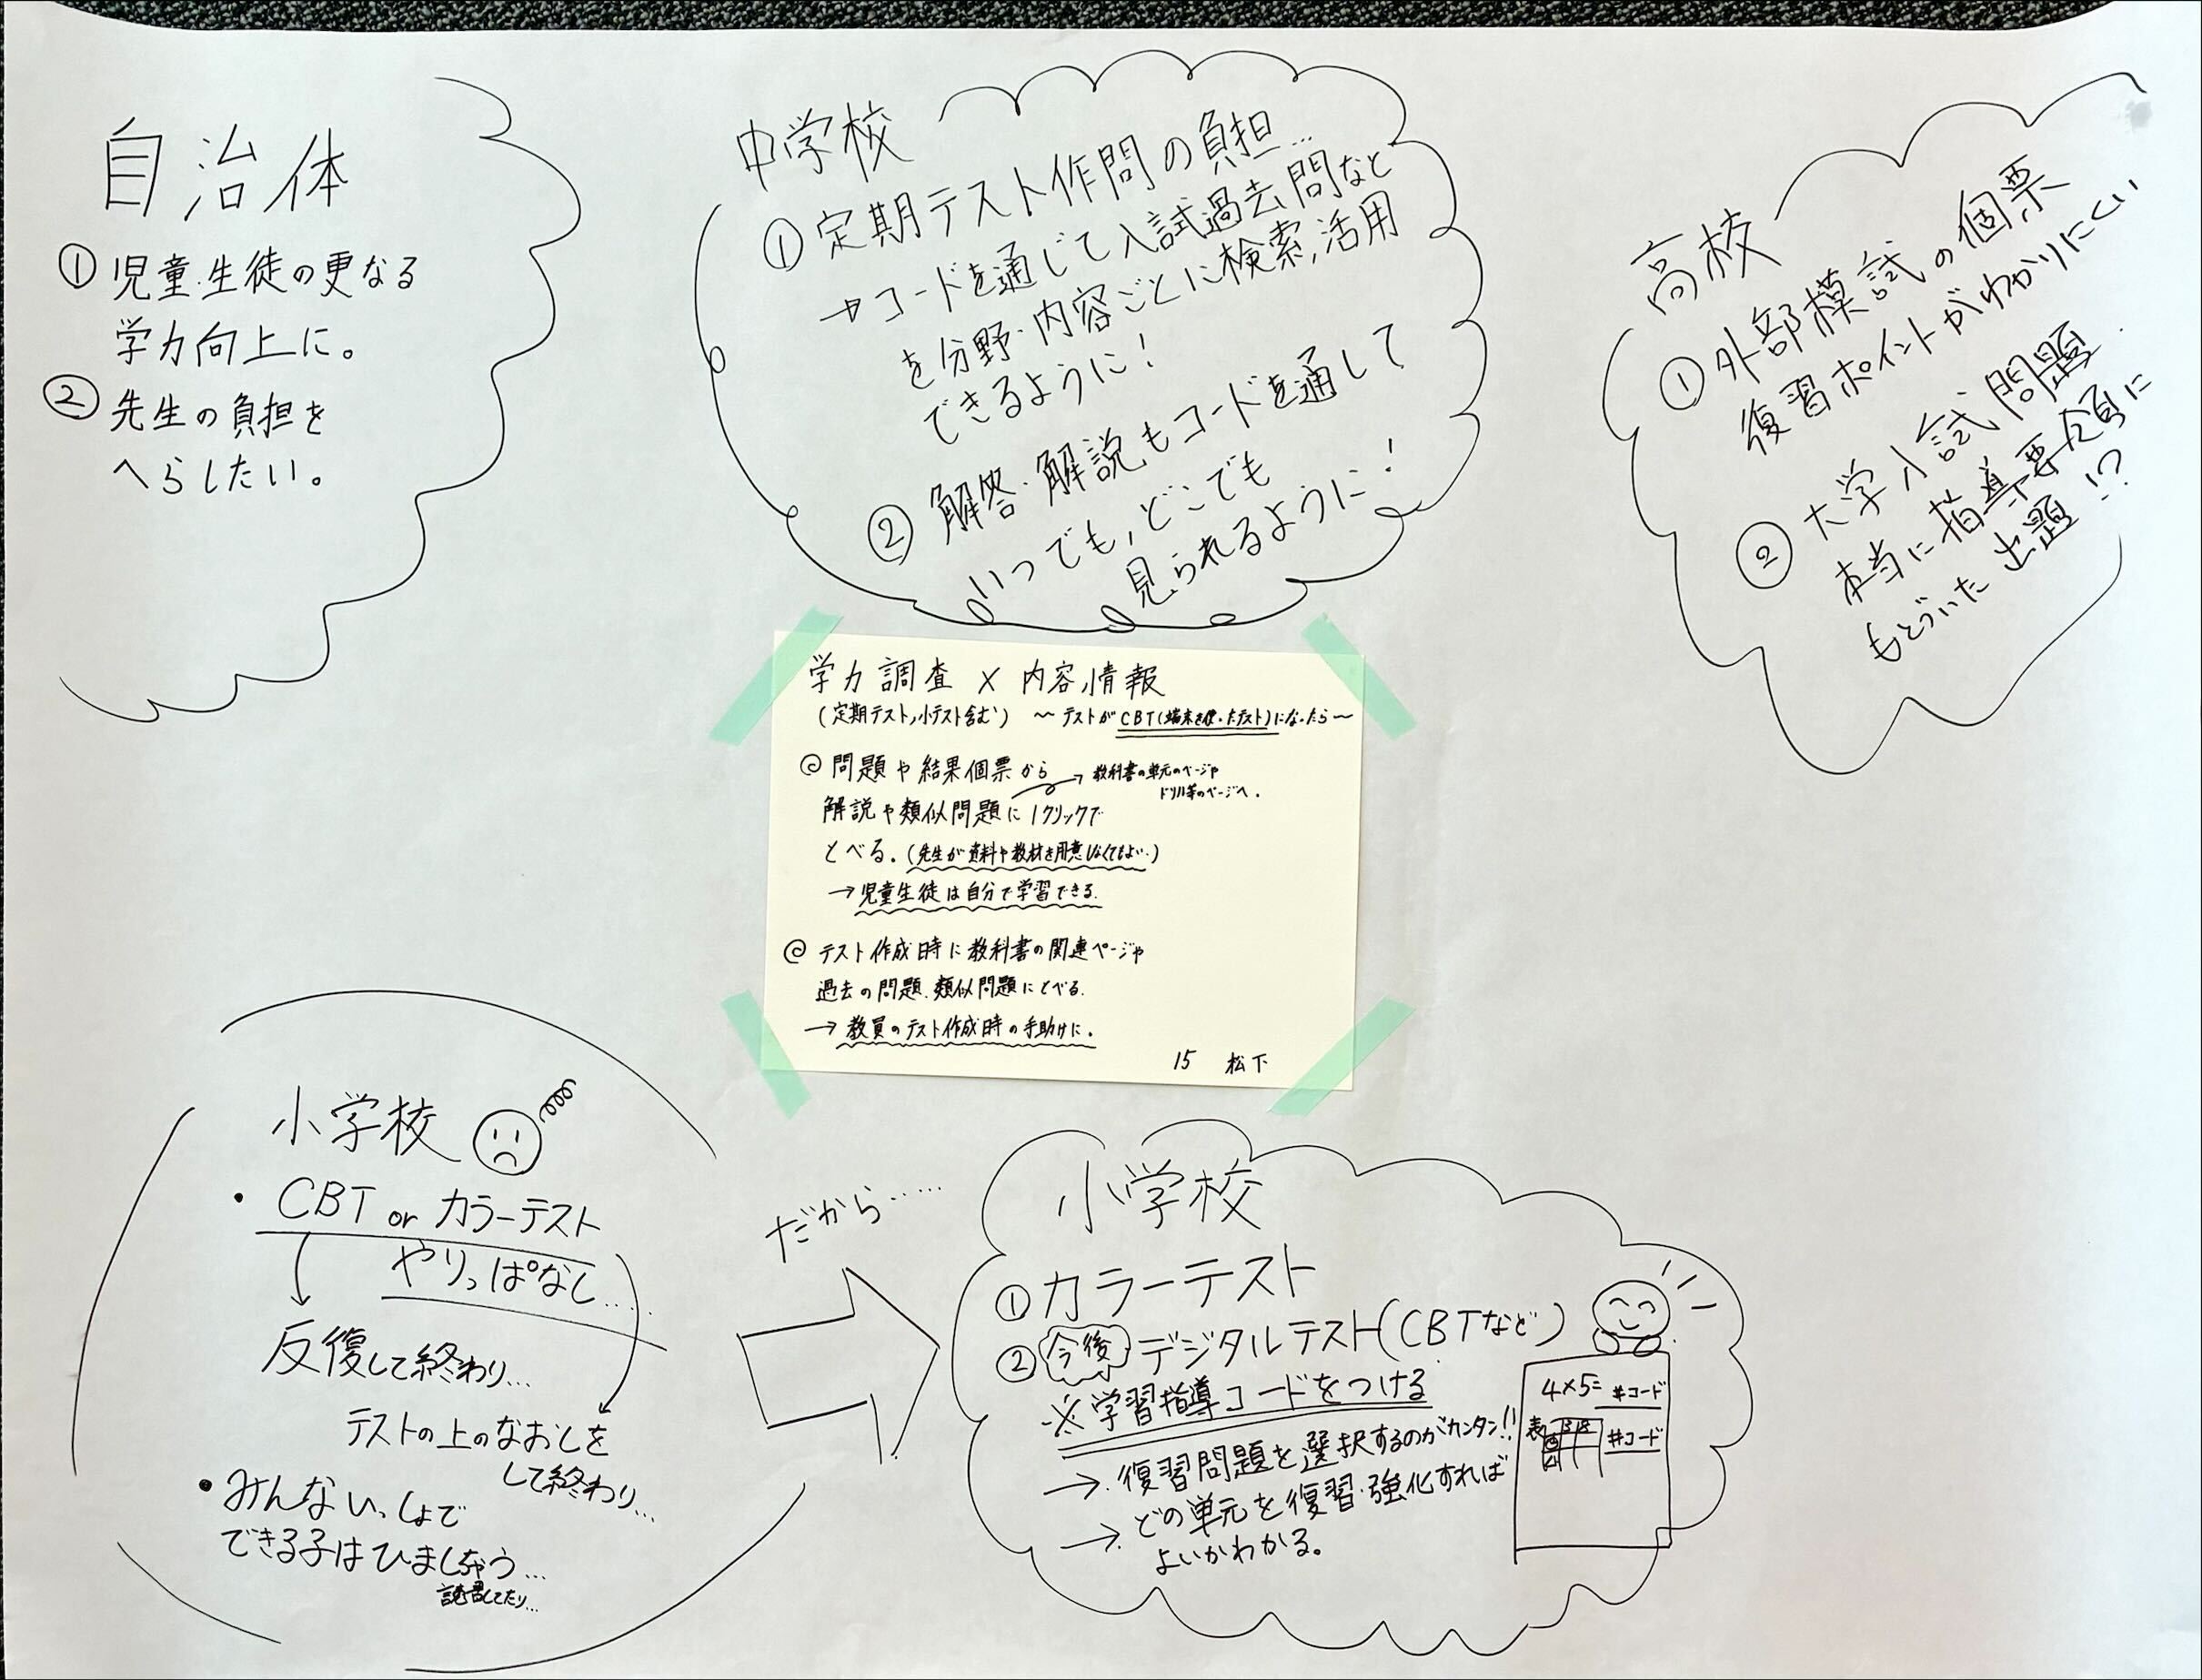 自治体
① 児童・生徒の更なる
学力向上に。
② 先生の負担を
へらしたい。
中学校
① 定期テスト作問の負担…
→コードを通じて入試過去問など
を分野・内容ごとに検索、活用
できるように!
② 解答・解説もコードを通して
いつでも、どこでも
見られるように!
高校
① 外部模試の個票
復習ポイントがわかりにくい
② 大学入試問題
本当に指導要領に
もとづいた出題!?
学力調査 × 内容情報
(定期テスト,小テスト含む) 〜テストがCBT(端末を使ったテスト)になったら〜
◎ 問題や結果個票から
→教科書の単元のページや
ドリル等のページへ.
解説や類似問題に1クリックで
とべる.(先生が資料や教材を用意しなくてもよい.)
→児童生徒は自分で学習できる.
◎ テスト作成時に教科書の関連ページや
過去の問題.類似問題にとべる.
→教員のテスト作成時の手助けに.
15 松下
小学校
・CBT or カラーテスト
やりっぱなし……
反復して終わり…
テストの上のなおしを
して終わり…
・みんないっしょで
できる子はひましちゃう…
読書してたり…
だから……
小学校
① カラーテスト
② 今後 デジタルテスト(CBTなど)
※学習指導コードをつける
→復習問題を選択するのがカンタン!!
→どの単元を復習・強化すれば
よいかわかる。
4×5= #コード
表 #コード